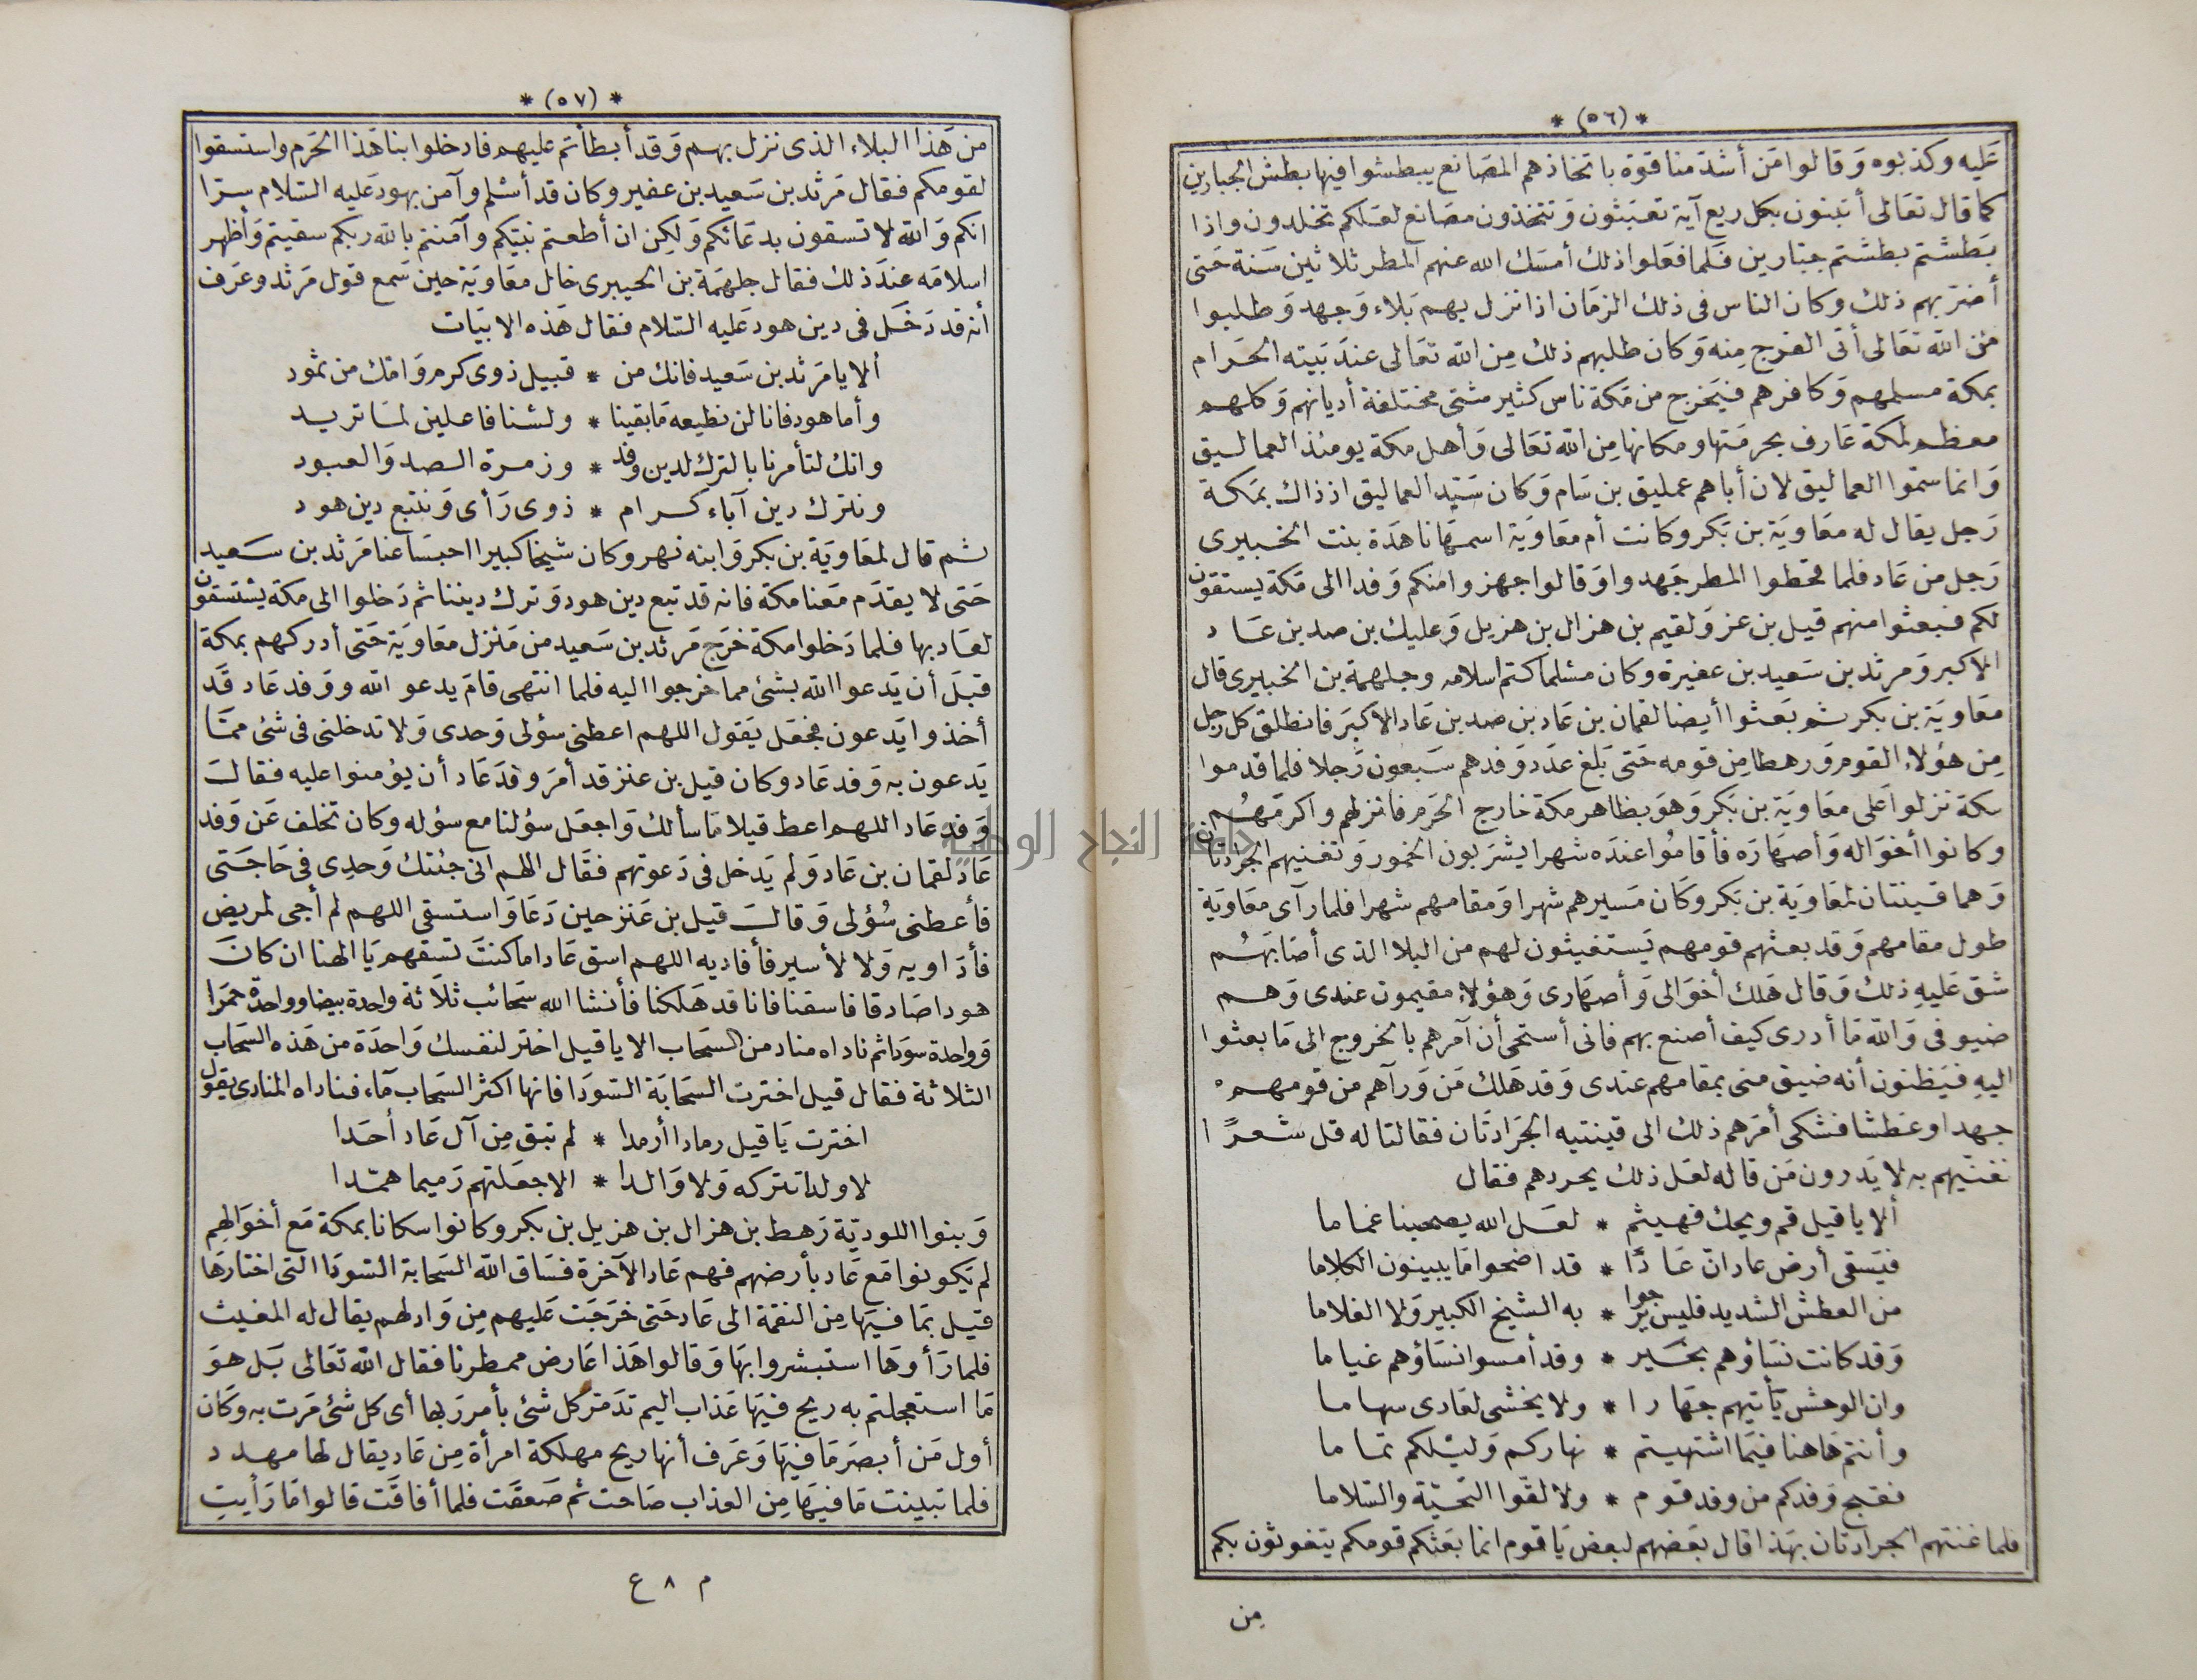 * (٥٦) *
عَليه وكذبوه وَقالوا مَن أشدّ منا قوة باتخاذهم المصَانع يبطشوا فيها بطش الجبارين
كما قال تعَالى أتبنون بكل ريع آية تعبَثون وَتتخذون مصَانع لعَلكم تخلدون واذا
بَطشتم بطشتم جبّارين فَلما فعَلوا ذلك أمسَك الله عنهم المطر ثلاثين سَنة حَتى
أضرّ بهم ذلك وكان الناس فى ذلك الزمَان اذا نزل بهم بَلاء وَجهد وَطلبوا
مْن الله تعَالى أتى الفرج مِنه وَكان طلبهم ذلك مِن الله تعَالى عندَ بَيته الحَرام
بمكة مسلمهم وَكافرهم فيَخرج من مَكة ناس كثير مشتى مختلفة أديانهم وَكلهم
معظم لمكة عَارف بحرمَتها ومكانها مِن الله تعَالى وَأهل مكة يومئذ العماليق
وَانما سمّوا العماليق لان أباهم عمليق بن سَام وَكان سَيّد العماليق اذ ذاك بمَكة
رَجل يقال له معَاويَة بن بَكر وكانت أم معَاويَة اسمهَا ناهدَة بنت الخبيرى
رَجل من عَاد فلما قحَطوا المطر جَهدوا وَقالوا جهزوا مَنكم وَفدا الى مَكة يستقون
لكم فبعثوا منهم قيل بن عز وَلقيم بن هزال بن هزيل وَعليك بن صد بن عَاد
الاكبر وَمرثد بن سَعيد بن عفيرة وكان مسْلما كتم اسلامه وجلهمة بن الخبيرى قال
معَاويَة بن بكر ثم بَعثوا أيضا لقمان بن عَاد بن صد بن عَاد الاكبَر فانطلق كل رَجل
مِن هؤلاء القوم وَرهط مِن قومه حَتى بَلغ عدَد وَفدهم سَبعون رَجلا فلما قدموا
مكة نزلوا عَلى معَاويَة بن بَكر وَهوَ بظاهر مكة خارج الحَرم فانزلهم واكرمَهُم
وكانوا أخوَاله وَأصهَارَه فأقامُوا عندَه شهرا يشرَبون الخمور وَتغنيهم الجرَادتان
وَهما قينتان لمعَاويَة بن بَكر وَكَان مَسيرهم شهرا وَمقامهم شهرا فلما رَآى معَاويَة
طول مقامهم وَقد بعثهم قومهم يَستغيثون لهم من البلا الذى أصَابَهُم
شق عَليهِ ذلك وَقال هَلك أخوَالى وَأصهَارى وَهؤلاء مقيمون عندى وَهم
ضيوفى وَالله مَا أدرى كيف أصنع بهم فانى أستحى أن آمرهم بالخروج الى مَا بعثوا
اليهِ فيَظنون أنه ضيق منى بمقامهم عندى وَقد هَلك مَن وَرآهم من قومهم
جهدا وعَطشا فشكى أمرَهم ذلك الى قينتيه الجَرَادتَان فقالتا له قل شعرًا
نغنّيهم به لا يَدرون مَن قاله لعَل ذلك يحردهم فقال
ألا يا قيل قم ويحك فهيثم * لعَل الله يصحبنا غماما
فيَسَقى أرض عاد انّ عَادًا * قد اضحوا مَا يبينون الكلاما
من العطش الشديد فليس يَرجوا * به الشيخ الكبير وَلا الغلاما
وَقد كانت نسَاؤهم بخَير * وقد أمسوا نسَاؤهم غياما
وان الوحش يَأتيهم جهَارا * ولا يخشى لعَادى سهاما
وأنتم هَاهنا فيمَا اشتهيتم * نهاركم وَليْلكم تماما
فقبح وَفدكم من وفد قوم * ولا لقّوا التحيّة والسّلاما
فلما غنتهم الجرادتان بهَذا قال بعَضهم لبعض يَا قوم انما بعَثكم قومكم يتغوثون بكم
مِن
* (٥٧) *
من هَذا البلاء الذى نزل بهم وَقد أبطأتم عليهم فادخلوا بنا هَذا الحَرم واستسقوا
لقومكم فقال مَرثد بن سَعيد بن عفير وكان قد أسْلم وآمن بهود عَليه السّلام سرّا
انكم وَالله لا تسقون بدعَائكم وَلكِن ان أطعتم نبيّكم وآمَنتم بالله ربكم سقيتم وَأظهر
اسلامَه عندَ ذلك فقال جلهمَة بن الخيبرى خال معَاويَة حين سَمع قول مَرثد وعَرف
أنه قد دَخَل فى دين هود عَليه السّلام فقال هَذه الابيَات
ألا يا مَرثد بن سَعيد فانك من * قبيل ذوى كرم وَامّك من ثمود
وأما هود فانا لن نطيعه مَا بقينا * ولسْنا فاعلين لمَا تريد
وانك لتأمرنا بالترك لدين وفد * وزمرة الصد وَالعبود
ونترك دين آباء كرام * ذوى رَأى وَنتبع دين هود
ثم قال لمعَاويَة بن بكر وَابنه نهر وكان شيخا كبيرا احبسَا عنا مَرثد بن سَعيد
حَتى لا يقدَم مَعنا مكة فانه قد تبع دين هود وَترك ديننا ثم دَخلوا الى مكة يسْتسَقون
لعَاد بها فلما دَخلوا مكة خرَج مَرثد بن سَعيد من مَنزل معَاويَة حَتى أدركهم بمكة
قبلَ أن يَدعوا الله بشئ مما خرجوا اليه فلما انتهى قامَ يدعو الله ووَفد عَاد قَد
أخذوا يَدعون فجعَل يَقول اللهم اعطنى سؤلى وَحدى وَلا تدخلنى فى شئ ممّا
يَدعون به وَفد عَاد وكان قيل بن عنز قد أمرَ وفدَ عَاد أن يؤمنوا عليه فقالَ
وَفد عَاد اللهم اعط قيلا مَا سألك وَاجعَل سؤلنا مع سؤله وكان تخلف عَن وَفد
عَاد لقمان بن عَاد وَلم يَدخل فى دَعوتهم فقَال اللهم انى جئتك وَحدِى فى حَاجَتى
فأعطنى سُؤلى وَقالَ قيل بن عَنز حين دَعَا وَاستسقى اللهم لم أجى لمريض
فأدَاويه وَلا لأسير فأفاديه اللهم اسق عَادا مَا كنتَ تسقهم يَا الهنا ان كانَ
هودا صَادقا فاسقنا فانا قد هَلكنا فأنشا الله سَحائب ثلَاثة واحدة بيضا وواحدَة حمرَا
وَواحدة سوَدا ثم ناداه مناد من السَحاب الا يا قيل اختر لنفسك وَاحدَة من هَذه السَحاب
الثلاثة فقال قيل اخترت السَحابَة السّودَا فانها اكثر السَحاب مَآء فناداه المنادى يقول
اخترت يَا قيل رمادا أرمدا * لم تبق مِن آل عَاد أحَدا
لا ولدا تتركه وَلا وَالدا * الا جعَلتهم رَميما همّدا
وَبنوا اللوديّة رَهط بن هزال بن هزيل بن بكر وكانوا سكانا بمكة مَع أخوَالهم
لم يَكونوا مَع عَاد بأرضهم فهم عَاد الآخرة فسَاق الله السَحابة السّودَا التى اختارَها
قيل بمَا فيهَا مِن النقمة الى عَاد حَتى خرَجَت عَليهم مِن وَاد لهم يقال له المغيث
فلما رَأوهَا استبشروا بهَا وَقالوا هَذا عَارض ممطرنا فقال الله تعَالى بَل هوَ
مَا استعجلتم به ريح فيهَا عَذاب اليم تدَمّر كل شئ بأمر رَبها أى كل شئ مَرت به وَكان
أول مَن أبصرَ مَا فيهَا وَعَرف أنها ريح مهلكة امرأة مِن عَاد يقال لها مهدد
فلما تبينت مَا فيهَا مِن العذاب صَاحت ثم صَعقَت فلما أفاقَت قالوا مَا رَأيتِ
م ٨ ع
جامعة النجاح الوطنية